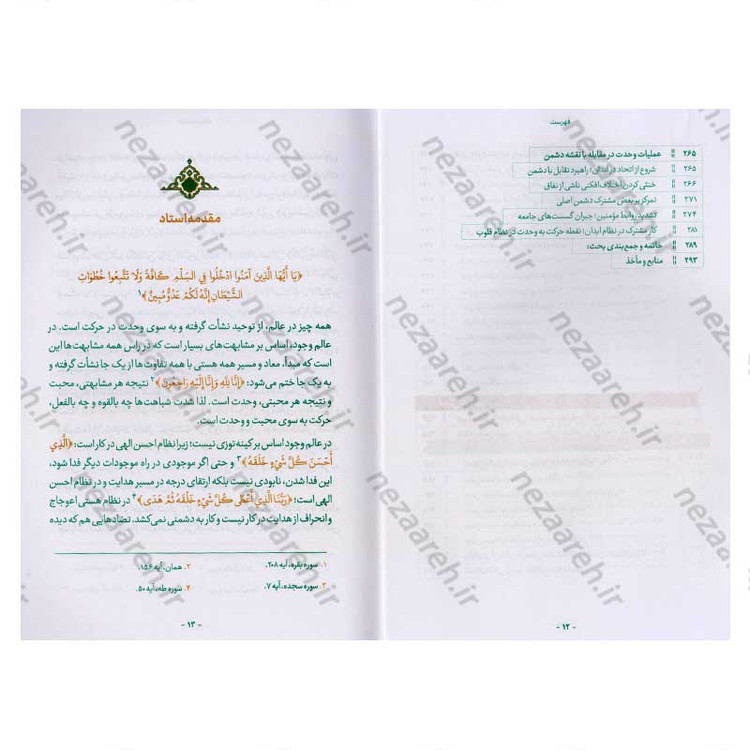 فهرست
عملیات وحدت در مقابله با نقشه دشمن ۲۶۵
شروع از اتحاد در ابدان؛ راهبرد تقابل با دشمن ۲۶۵
خنثی کردن اختلاف‌افکنی ناشی از نفاق ۲۶۶
تمرکز بر بغض مشترک دشمن اصلی ۲۷۱
تشدید روابط مؤمنین؛ جبران گسست‌های جامعه ۲۷۴
کار مشترک در نظام ابدان؛ نقطه حرکت به وحدت در نظام قلوب ۲۸۱
خاتمه و جمع‌بندی بحث: ۲۸۹
منابع و مآخذ ۲۹۳
- ۱۲ -
مقدمه استاد
﴿يَا أَيُّهَا الَّذِينَ آمَنُوا ادْخُلُوا فِي السِّلْمِ كَافَّةً وَلَا تَتَّبِعُوا خُطُوَاتِ
الشَّيْطَانِ إِنَّهُ لَكُمْ عَدُوٌّ مُبِينٌ﴾۱
همه چیز در عالم، از توحید نشأت گرفته و به سوی وحدت در حرکت است. در
عالم وجود، اساس بر مشابهت‌های بسیار است که در راس همه مشابهت‌ها این
است که مبدأ، معاد و مسیر همه هستی با همه تفاوت‌ها از یک جا نشأت گرفته و
به یک جا ختم می‌شود: ﴿إِنَّا لِلهِ وَإِنَّا إِلَيْهِ رَاجِعُونَ﴾۲ نتیجه هر مشابهتی، محبت
و نتیجه هر محبتی، وحدت است. لذا شدت شباهت‌ها چه بالقوه و چه بالفعل،
حرکت به سوی محبت و وحدت است.
در عالم وجود اساس بر کینه توزی نیست؛ زیرا نظام احسن الهی در کار است؛ ﴿الَّذِي
أَحْسَنَ كُلَّ شَيْءٍ خَلَقَهُ﴾۳ و حتی اگر موجودی در راه موجودات دیگر فدا شود،
این فدا شدن، نابودی نیست بلکه ارتقای درجه در مسیر هدایت و در نظام احسن
الهی است؛ ﴿رَبُّنَا الَّذِي أَعْطَى كُلَّ شَيْءٍ خَلْقَهُ ثُمَّ هَدَى﴾۴ در نظام هستی اعوجاج
و انحراف از هدایت در کار نیست و کار به دشمنی نمی‌کشد. تضادهایی هم که دیده
۱. سوره بقره، آیه ۲۰۸. ۲. همان، آیه ۱۵۶.
۳. سوره سجده، آیه ۷. ۴. سوره طه، آیه ۵۰.
- ۱۳ -
nezaareh.ir